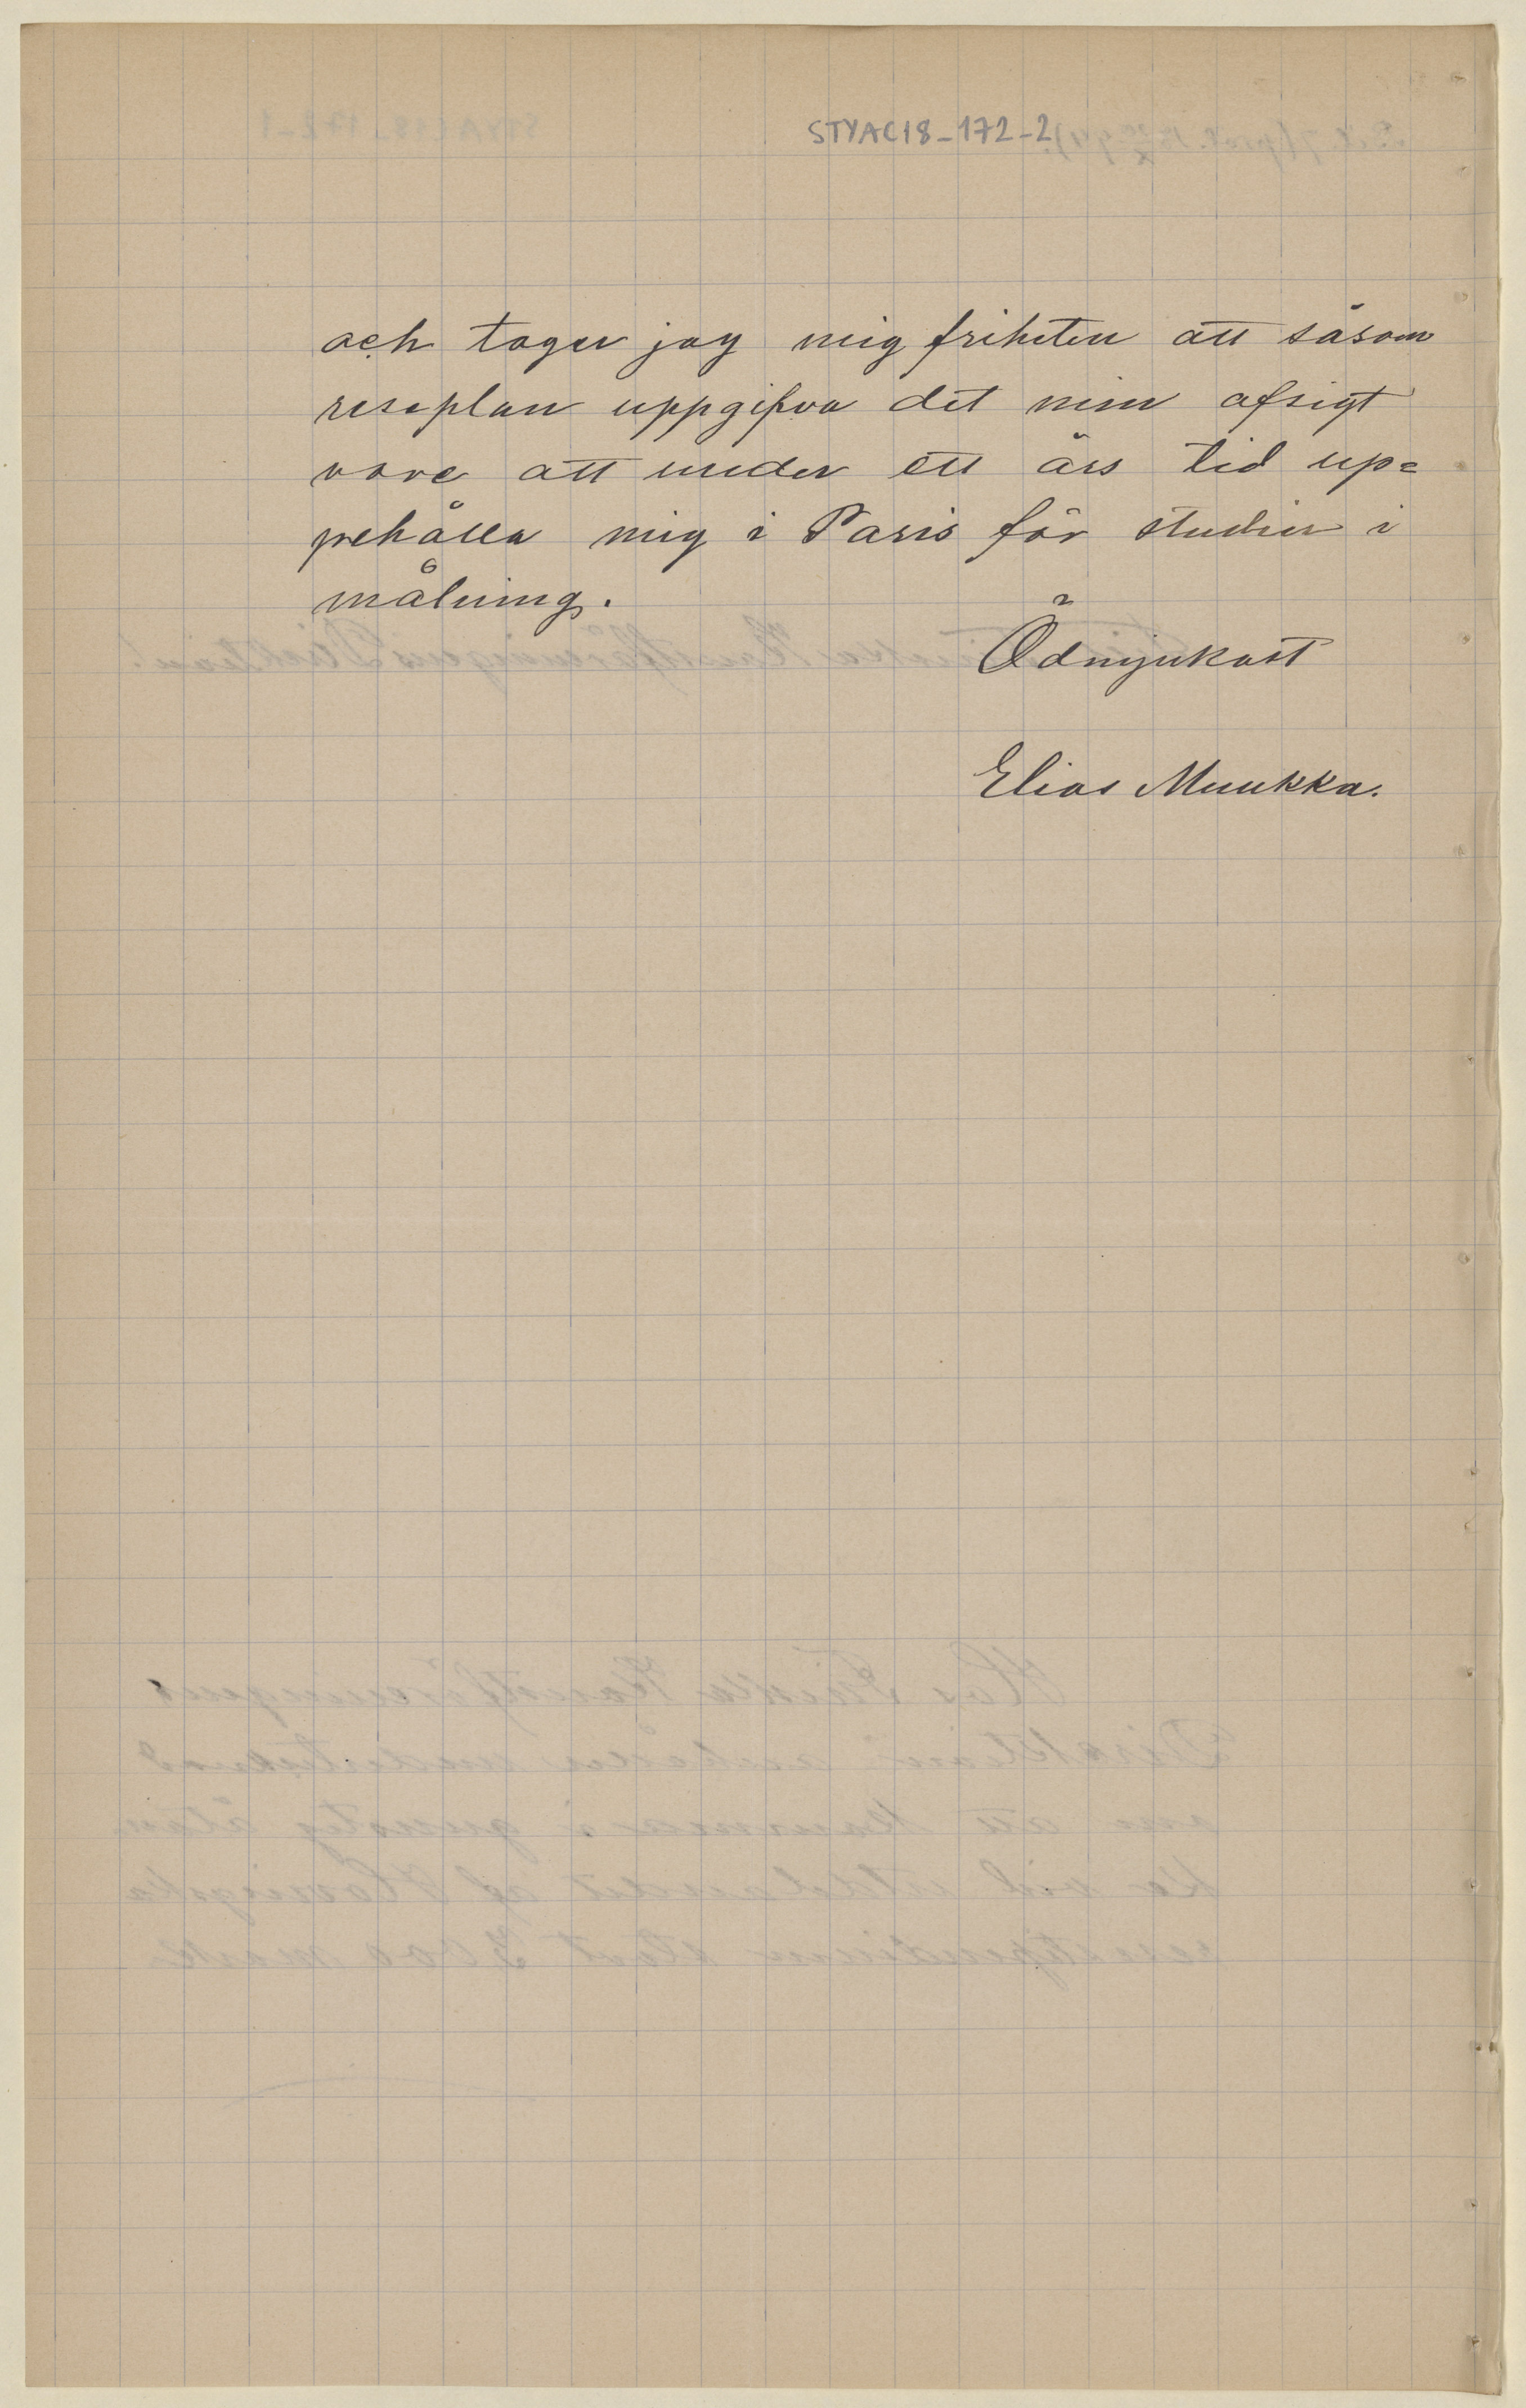 STYAC18-172-2
och tager jag mig friheten att såsom
reseplan uppgifva det min afsigt
vore att under ett års tid up=
pehålla mig i Paris för studier i
målning.
Ödmjukast
Elias Muukka.